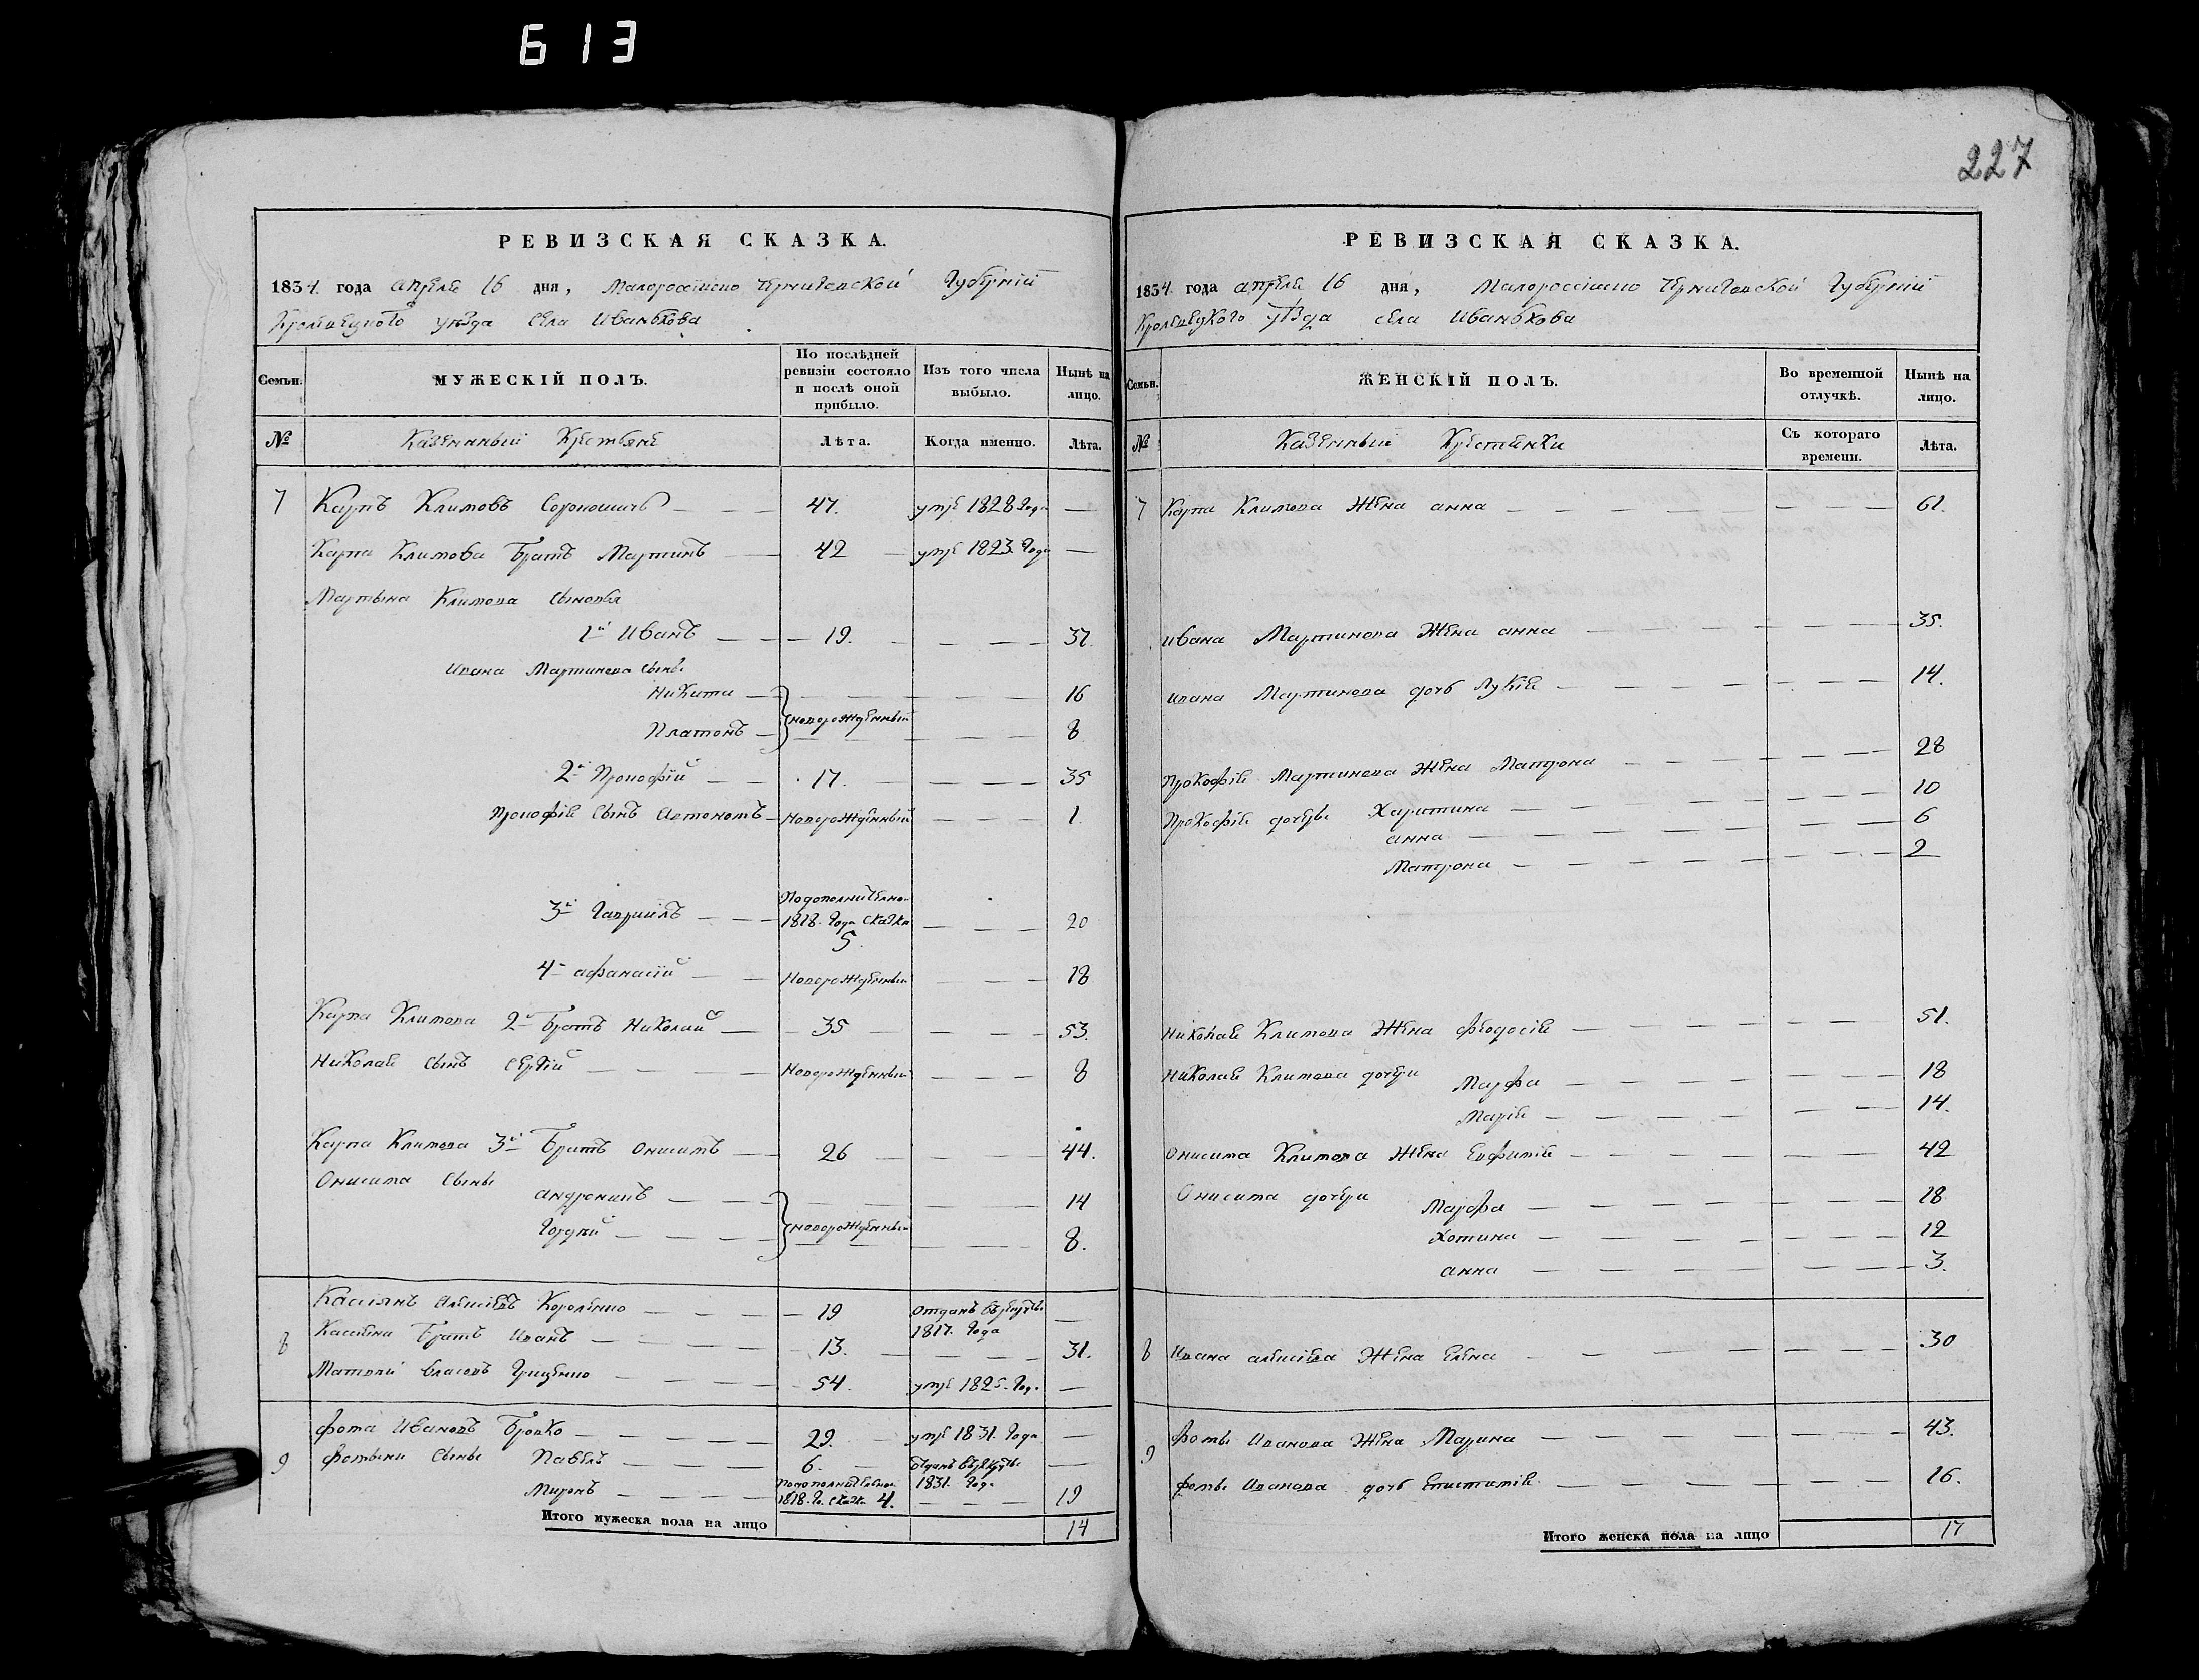 613
227
РЕВИЗСКАЯ СКАЗКА.
1834. года апреля 16 дня, Малороссійско Черниговской Губерніи
Кролевецкого уѣзда села Иванькова
Семьи. МУЖЕСКІЙ ПОЛЪ. По послѣдней ревизіи состояло и послѣ оной прибыло. Изъ того числа выбыло. Нынѣ на лицо.
№ Казенныи Крестьяне Лѣта. Когда именно. Лѣта.
7 Карпъ Климовъ 47. умре 1828 Года —
Карпа Климова Братъ Мартинъ 42 умре 1823. Года —
Мартына Климова Сыновья
1й Иванъ 19. 37.
Ивана Мартинова Сыны
Никита 16
новорожденныи
Платонъ 8
2й Прокофій 17. 35
Прокофія Сынъ Автономъ Новорожденныи 1.
3й Гавриилъ Подополнителной 1818. Года Сказки 5. 20
4й Афанасій Новорожденныи 18
Карпа Климова 2й Братъ Николай 35 53.
Николая Сынъ Сергій Новорожденныи 8
Карпа Климова 3й Братъ Онисимъ 26 44.
Онисима Сыны
Андроникъ 14
новорожденныи
Гордѣй 8.
8 Кассіянъ Алексіевъ Короленко 19 Отданъ Врекруты 1817. Года —
Кассіяна Братъ Иванъ 13. 31.
Матвѣй Власовъ Грищенко 54. умре 1825. Года —
9 Фома Ивановъ Бровко 29. умре 1831. Года —
Фомины Сыны Павелъ 6. Отданъ Врекруты 1831. Года —
Миронъ Подополнителной 1818. Го. Сказки 4. 19
Итого мужеска пола на лицо 14
РЕВИЗСКАЯ СКАЗКА.
1834 года апреля 16 дня, Малороссійско Черниговской Губерніи
Кролевецкого уѣзда села Иванькова
Семьи. ЖЕНСКІЙ ПОЛЪ. Во временной отлучкѣ. Нынѣ на лицо.
№ Казенныи Крестянки Съ котораго времени. Лѣта.
7 Карпа Климова Жена анна 61.
Ивана Мартинова Жена анна 35.
Ивана Мартинова дочь Лукія 14.
Прокофія Мартинова Жена Матрона 28
Прокофія дочеры Харитина 10
анна 6
Матрона 2
Николая Климова Жена Феодосія 51.
Николая Климова дочери Марфа 18
Марія 14.
Онисима Климова Жена Евфимія 42
Онисима дочери Марфа 18
Хотина 12
анна 3.
8 Ивана алексіева Жена Елена 30
9 Фомы Иванова Жена Марина 43.
Фомы Иванова дочь Епистимія 16.
Итого женска пола на лицо 17